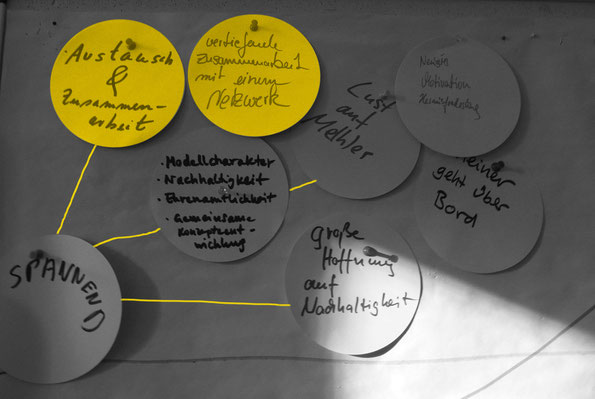 · Austausch
&
Zusammen-
arbeit
vertiefende
Zusammenarbeit
mit einem
Netzwerk
Lust
auf
Mehler
Motivation
keiner
geht über
Bord
· Modellcharakter
· Nachhaltigkeit
· Ehrenamtlichkeit
· Gemeinsame
Konzeptent-
wicklung
SPANNEND
große
Hoffnung
auf
Nachhaltigkeit